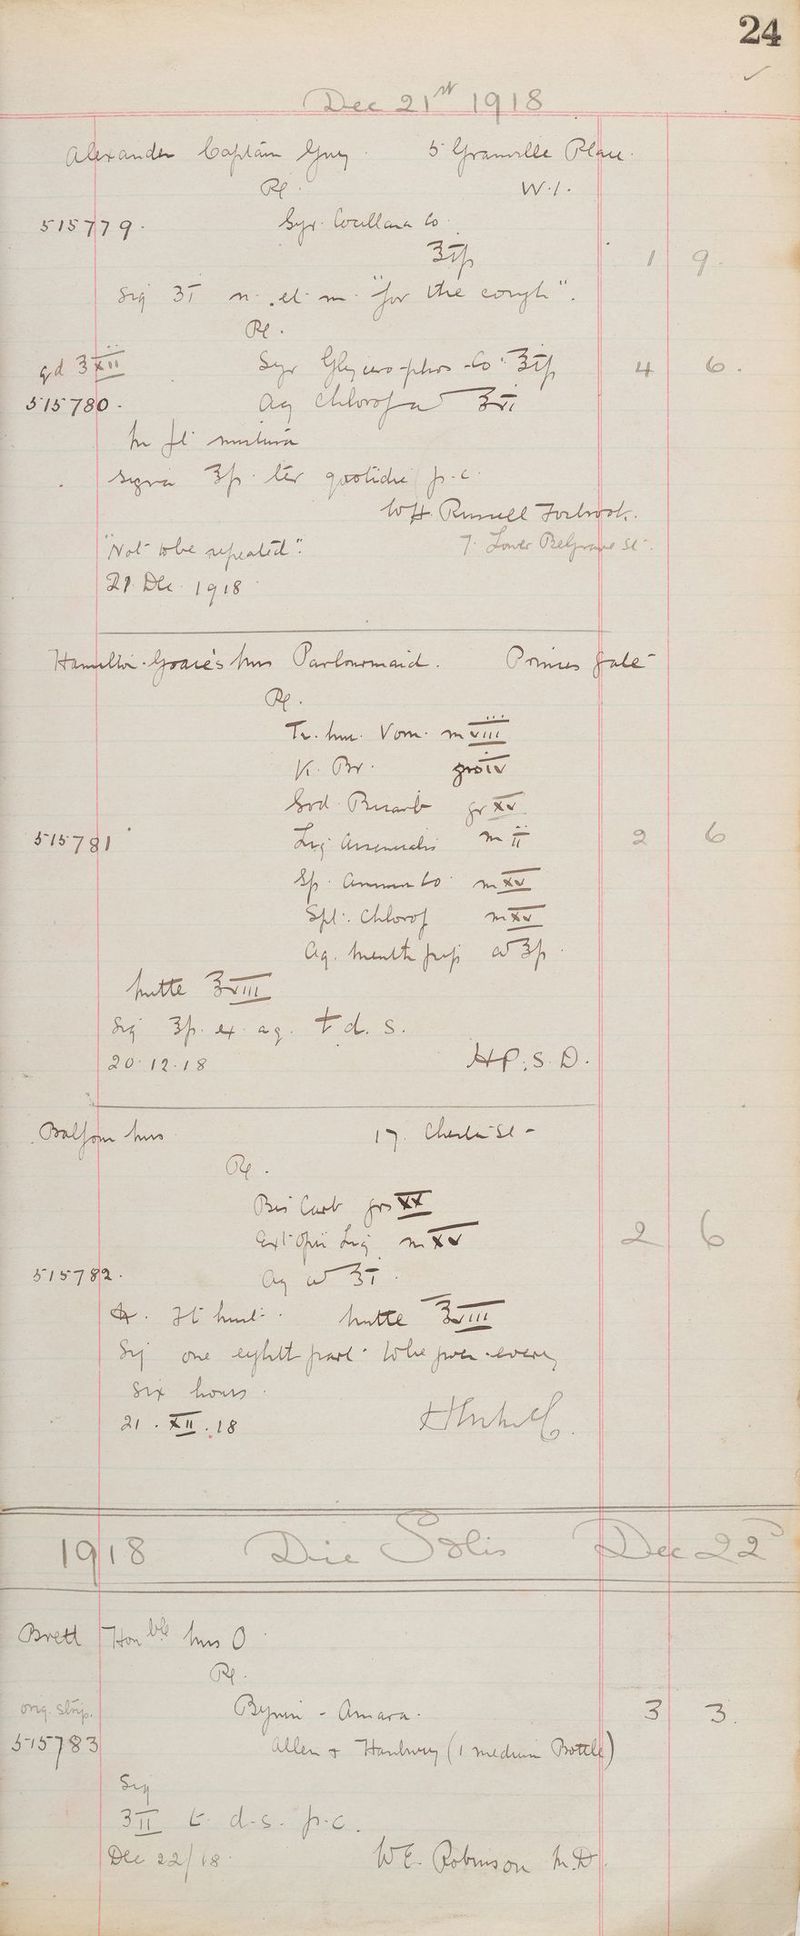 24
Dec 21st 1918
Alexander Captain Guy 5 Granville Place
Rx. W.1.
515779. Syr. Cocillana Co.
1 9.
Sig ʒ i n. et m. "for the cough".
Rx.
qd ℥ xii Syr Glycero-phos-Co. 4 6.
515780. Aq Chlorof ad ℥vi
M ft mistura
Signa ter quotidie p.c.
WH. Russell
"Not to be repeated". 7. Lower Belgrave St.
21 Dec. 1918
Hamilton. Mrs Parlourmaid. Princes Gate
Rx.
Tr. Nuc. Vom. m viii
K. Br.
Sod Bicarb gr xv
515781 Liq Arsenicalis m ii 2 6
Sp. Ammon Co m xv
Spt. Chlorof m xv
Aq. Menth pip ad
Mitte ℥viii
Sig ex aq. t d. s.
20.12.18 HP.S.D.
Balfour Mrs 17. Charles St-
Rx.
Bis Carb grs xx
Ext Opii Liq m xv 2 6
515782. Aq ad ℥ i
Ft Mitte ℥viii
Sig one eighth part to be given every
six hours.
21. XII. 18
1918 Die Solis Dec 22
Brett Honble Mrs O
Rx.
orig. strip. Bynin - Amara. 3 3.
515783 Allen & Hanbury (1 medium Bottle)
Sig
ʒ II t. d.s. p.c.
Dec 22/18. W.E. Robinson M.D